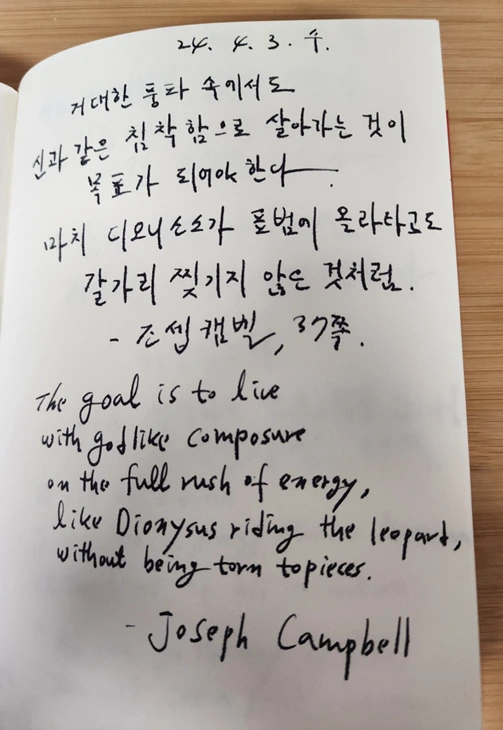 24. 4. 3. 수.
거대한 풍파 속에서도
신과 같은 침착함으로 살아가는 것이
목표가 되어야 한다.
마치 디오니소스가 표범에 올라타고도
갈가리 찢기지 않은 것처럼.
- 조셉 캠벨, 37쪽.
The goal is to live
with godlike composure
on the full rush of energy,
like Dionysus riding the leopard,
without being torn to pieces.
- Joseph Campbell